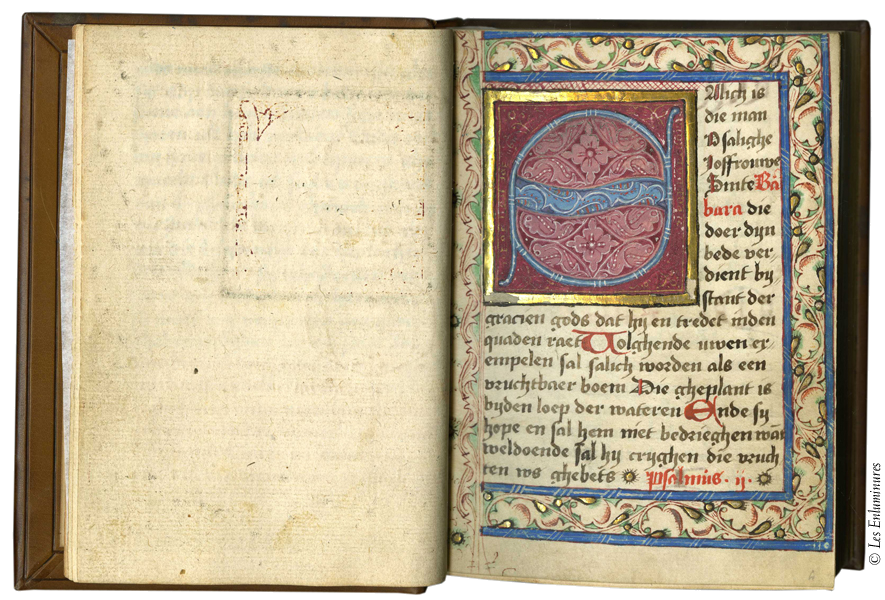 Alich is
die man
O salighe
Joffrouwe
Sinte Bar
bara die
doer dyn
bede ver
dient by
stant der
gracien gods dat hij en tredet inden
quaden raet Volghende uwen ex
empelen sal salich worden als een
vruchtbaer boem Die gheplant is
byden loep der wateren Ende sy
hope en sal hem niet bedrieghen wāt
weldoende sal hij cryghen die vruch
ten ws ghebets Psalmus · ij ·
© Les Enluminures